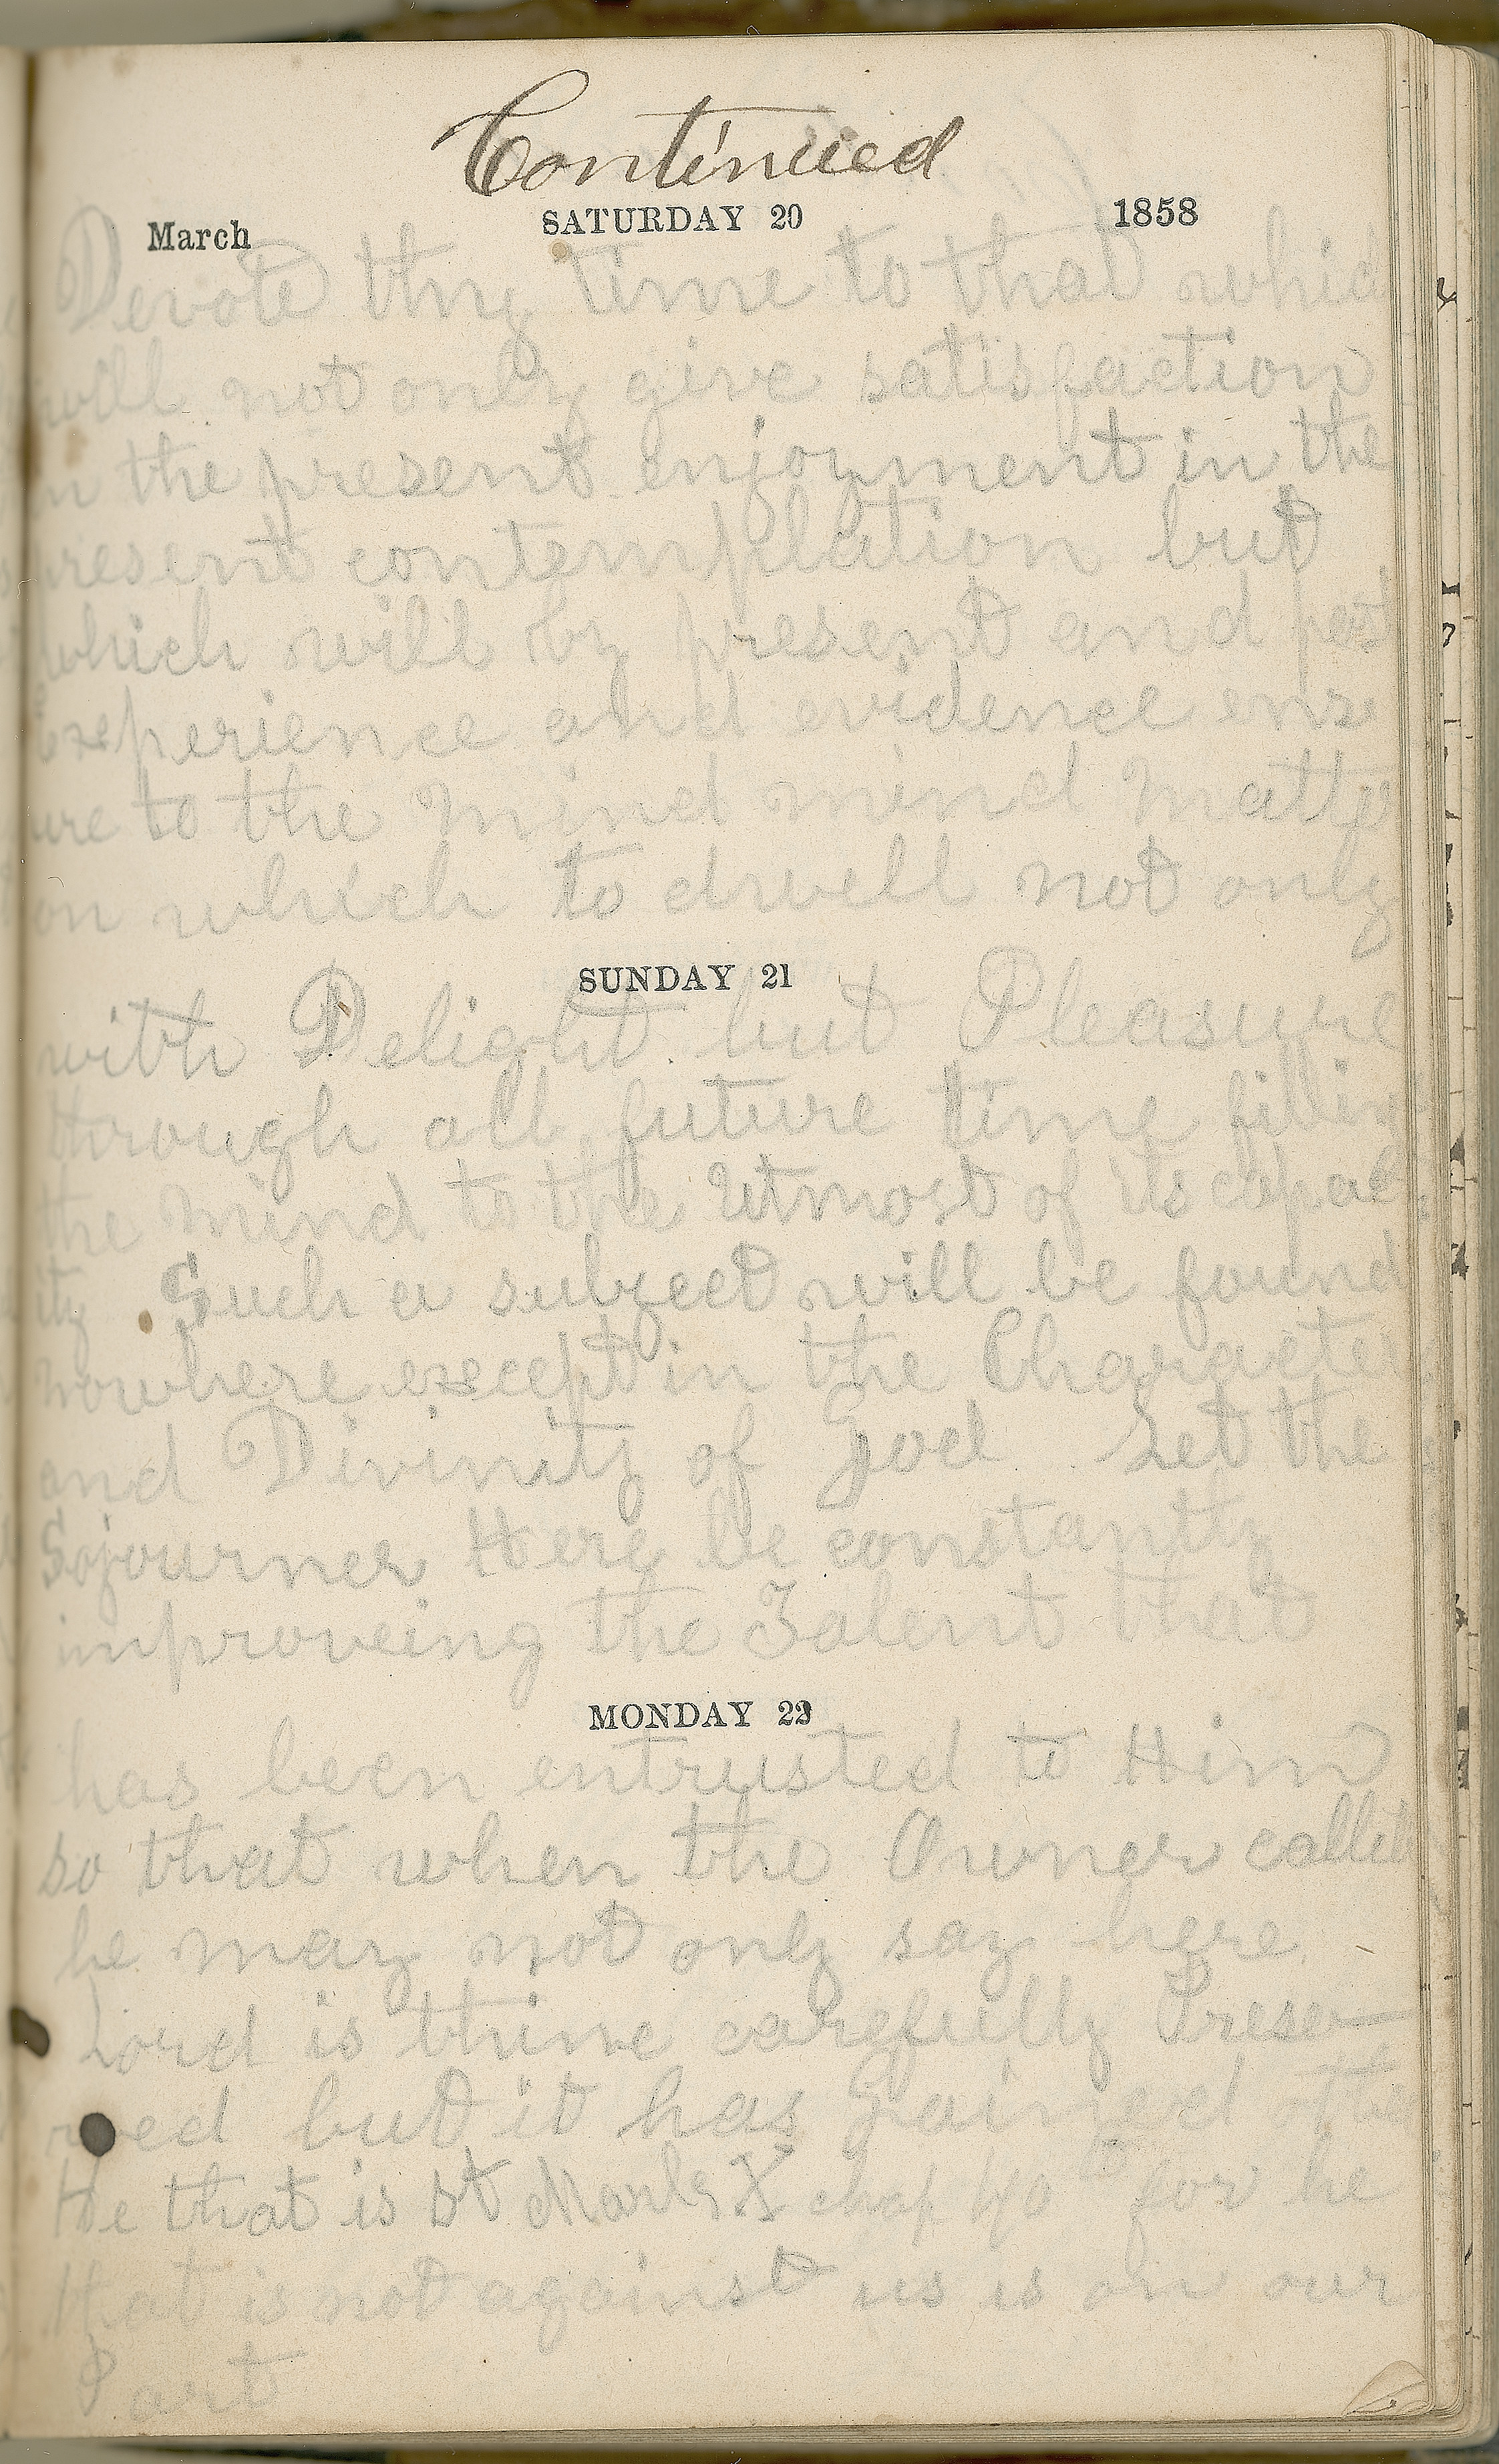 Continued
March SATURDAY 20 1858
Devote thy time to that whic
will not only give satisfaction
n the present enjoyment in the
present contemplation but
which will by present and past
experience and evidence ens
ure to the mind mind matte
on which to dwell not only
SUNDAY 21
with Delight but Pleasure
through all future time filling
the mind to the Utmost of its capac
ity Such a subject will be found
nowhere except in the Character
and Divinity of God Let the
Sojourner Here be constantly
improveing the Talent that
MONDAY 22
has been entrusted to Him
so that when the Owner calleth
he may not only say here
Lord is thine carefully Preser
ved but it has Gained
He that is St Marks X chap 40 for he
that is not against us is on our
Part